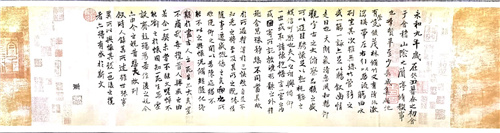 永和九年歲在癸丑暮春之初會
于會稽山陰之蘭亭脩禊事
也群賢畢至少長咸集此地
有崇山峻領茂林脩竹又有清流激
湍暎帶左右引以為流觴曲水
列坐其次雖無絲竹管弦之
盛一觴一詠亦足以暢敘幽情
是日也天朗氣清惠風和暢仰
觀宇宙之大俯察品類之盛
所以遊目騁懷足以極視聽之
娛信可樂也夫人之相與俯仰
一世或取諸懷抱悟言一室之內
或因寄所託放浪形骸之外雖
趣舍萬殊靜躁不同當其欣
於所遇暫得於己快然自足不
知老之將至及其所之既倦情
隨事遷感慨係之矣向之所欣
俛仰之間以為陳迹猶不
能不以之興懷況脩短隨化終
期於盡古人云死生亦大矣豈
不痛哉每攬昔人興感之由
若合一契未嘗不臨文嗟悼不
能喻之於懷固知一死生為虛
誕齊彭殤為妄作後之視今
亦由今之視昔悲夫故列
敘時人錄其所述雖世殊事
異所以興懷其致一也後之攬
者亦將有感於斯文